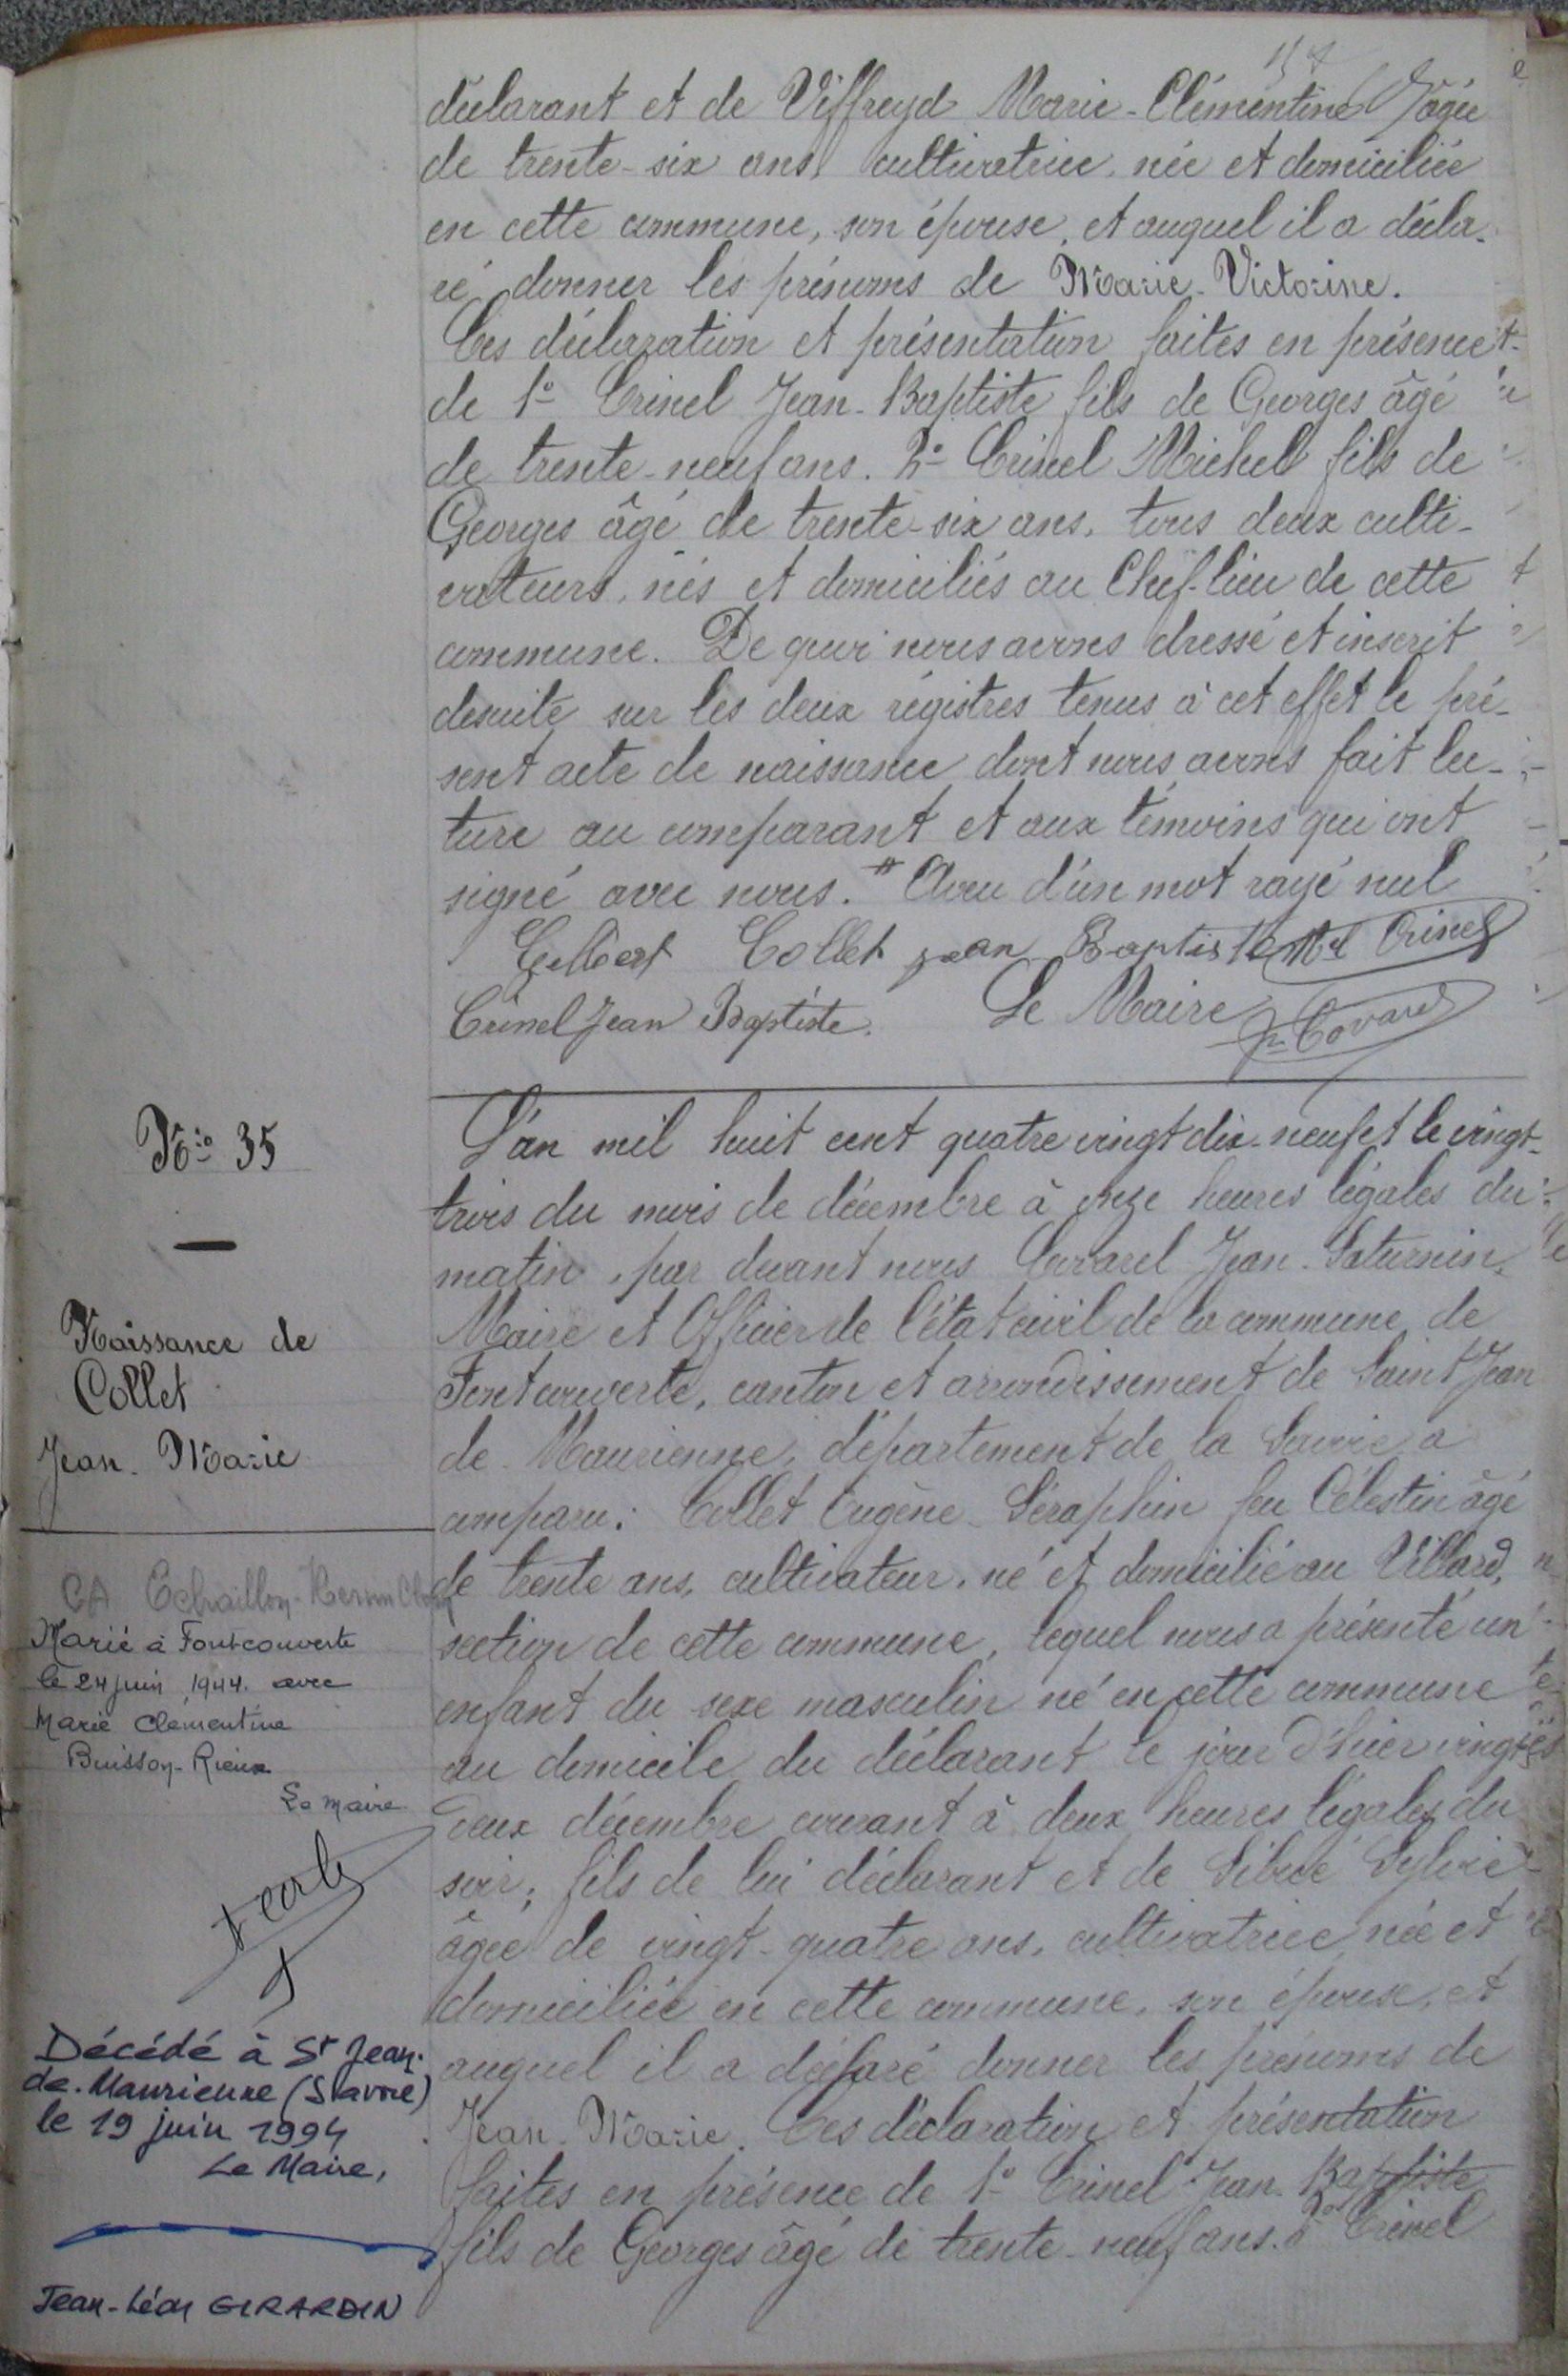 déclarant et de Viffreyd Marie-Clémentine âgée
de trente-six ans, cultivatrice, née et domiciliée
en cette commune, son épouse, et auquel il a décla-
ré donner les prénoms de Marie-Victorine.
Ces déclaration et présentation faites en présence
de 1° Crinel Jean-Baptiste fils de Georges âgé
de trente-neuf ans. 2° Crinel Michel fils de
Georges âgé de trente-six ans, tous deux culti-
vateurs, nés et domiciliés au Chef-lieu de cette
commune. De quoi nous avons dressé et inscrit
desuite sur les deux régistres tenus à cet effet le pré-
sent acte de naissance dont nous avons fait lec-
ture au comparant et aux témoins qui ont
signé avec nous. # Aveu d'un mot rayé nul
Collet jean Baptiste Mel Crinel
Crinel Jean Baptiste. Le Maire
Covarel
N° 35
Naissance de
Collet
Jean-Marie
L'an mil huit cent quatre vingt dix-neuf et le vingt-
trois du mois de décembre à onze heures légales du
matin, par devant nous Covarel Jean-Saturnin,
Maire et Officier de l'état civil de la commune de
Fontcouverte, canton et arrondissement de Saint Jean
de Maurienne, département de la Savoie, a
comparu: Collet Eugène-Séraphin feu Célestin âgé
de trente ans, cultivateur, né et domicilié au Villard,
section de cette commune, lequel nous a présenté un
enfant du sexe masculin né en cette commune
au domicile du déclarant le jour d'hier vingt-
deux décembre courant à deux heures légales du
soir, fils de lui déclarant et de Sibué Sylvie
âgée de vingt-quatre ans, cultivatrice, née et
domiciliée en cette commune, son épouse, et
auquel il a déclaré donner les prénoms de
Jean-Marie. Ces déclaration et présentation
faites en présence de 1° Crinel Jean-Baptiste
fils de Georges âgé de trente-neuf ans. 2° Crinel
CA Echaillon
Marié à Fontcouverte
le 24 juin 1944. avec
Marie Clementine
Buisson-Rieux
Le maire
Décédé à St Jean-
de-Maurienne (Savoie)
le 19 juin 1994
Le Maire,
Jean-Léon GIRARDIN